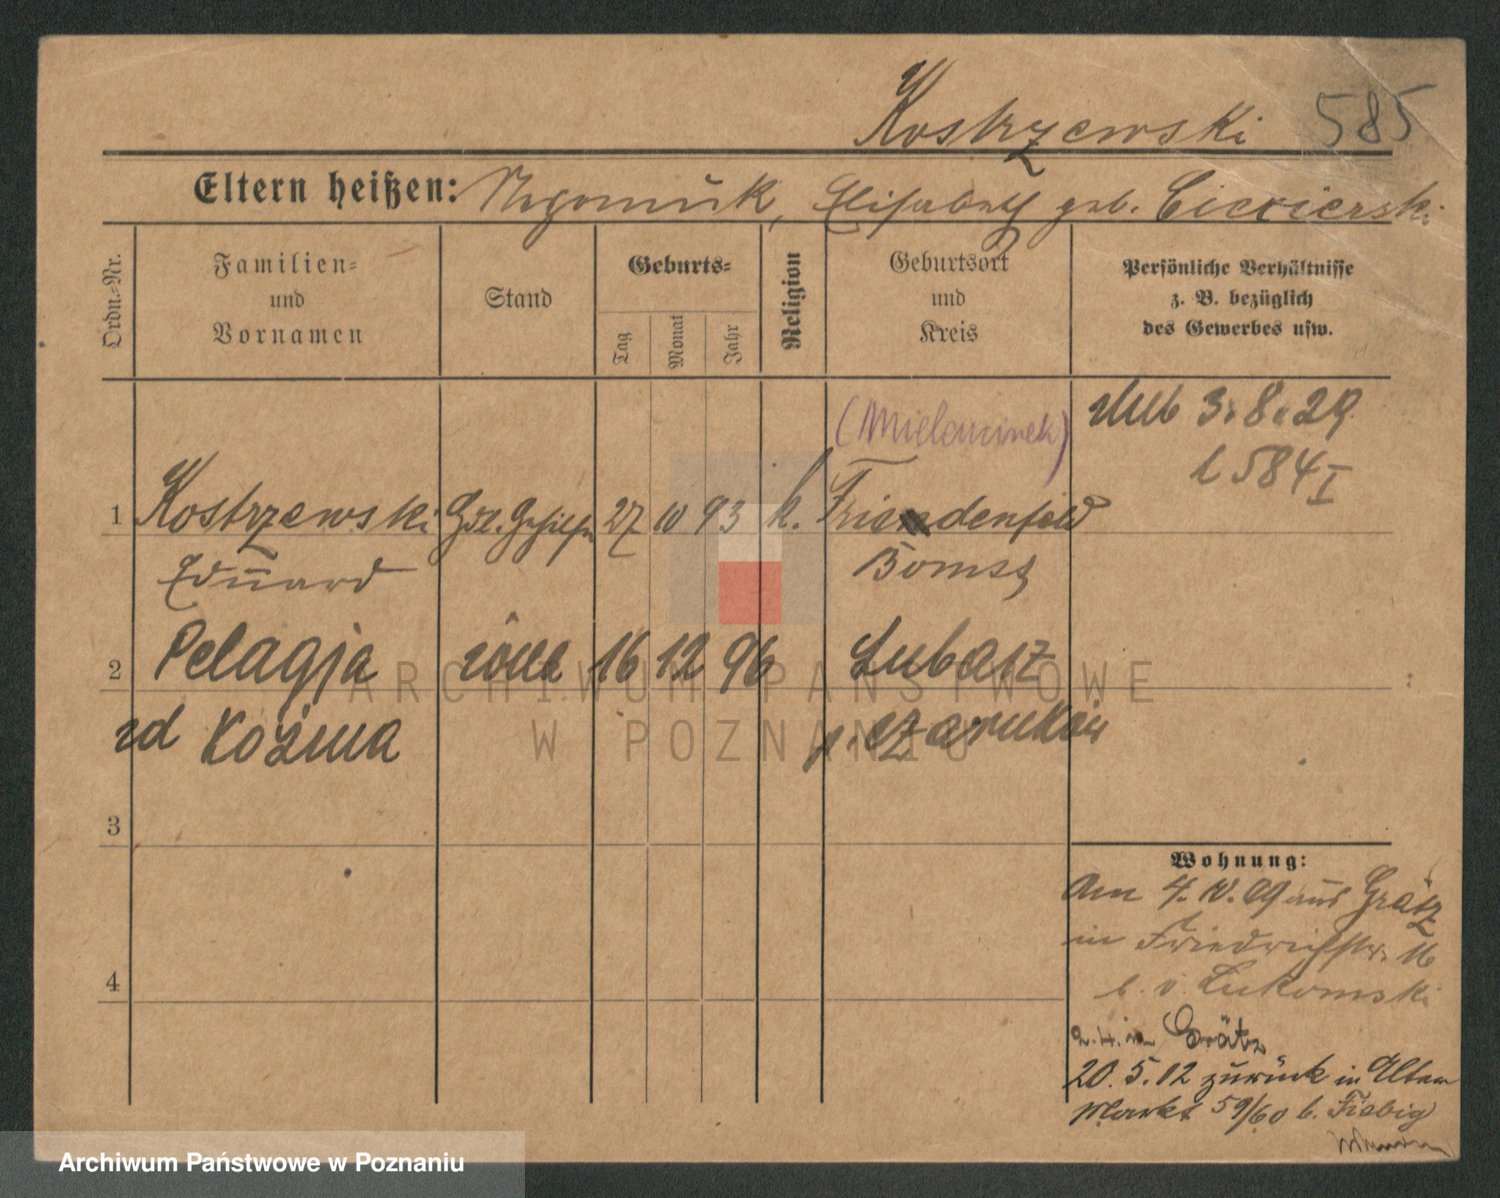 Kostrzewski 585
Eltern heißen: Nepomuk, Elisabeth geb. Ciecierski
Ordn.-Nr.
Familien-
und
Vornamen
Stand
Geburts-
Tag
Monat
Jahr
Religion
Geburtsort
und
Kreis
Persönliche Verhältnisse
z. B. bezüglich
des Gewerbes usw.
ślub 3.8.29
l 584 I
(Mielcuinek)
1 Kostrzewski Hdl. Gehilfe 27 10 93 k. Friedenfeld
Eduard Bomst
2 Pelagja żona 16 12 96 Lubasz
zd Koźma p. Czarnków
3
4
Wohnung:
Am 4.10.09 aus Grätz
in Friedrichstr. 16
b. v. Lukomski
2.4. in Grätz
20.5.12 zurück in Alten
Markt 59/60 b. Fiebig
ARCHIWUM PAŃSTWOWE
W POZNANIU
Archiwum Państwowe w Poznaniu